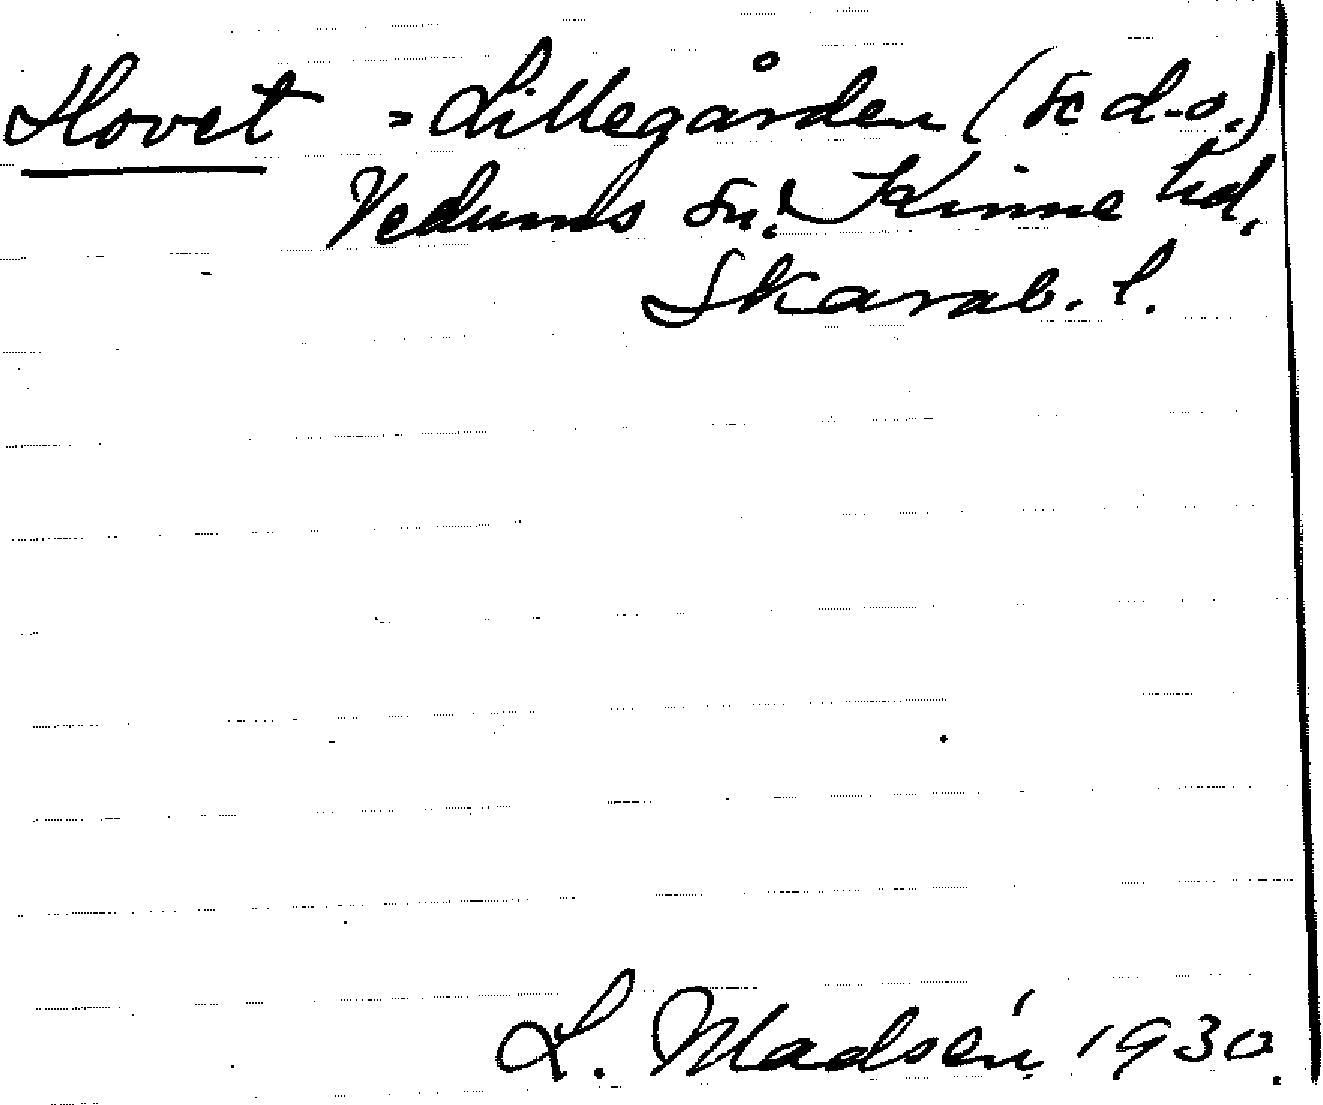 Hovet = Lillegården (se d-o.)
Vedums sn. Kinne hd,
Skarab. l.
L. Madsén 1930.